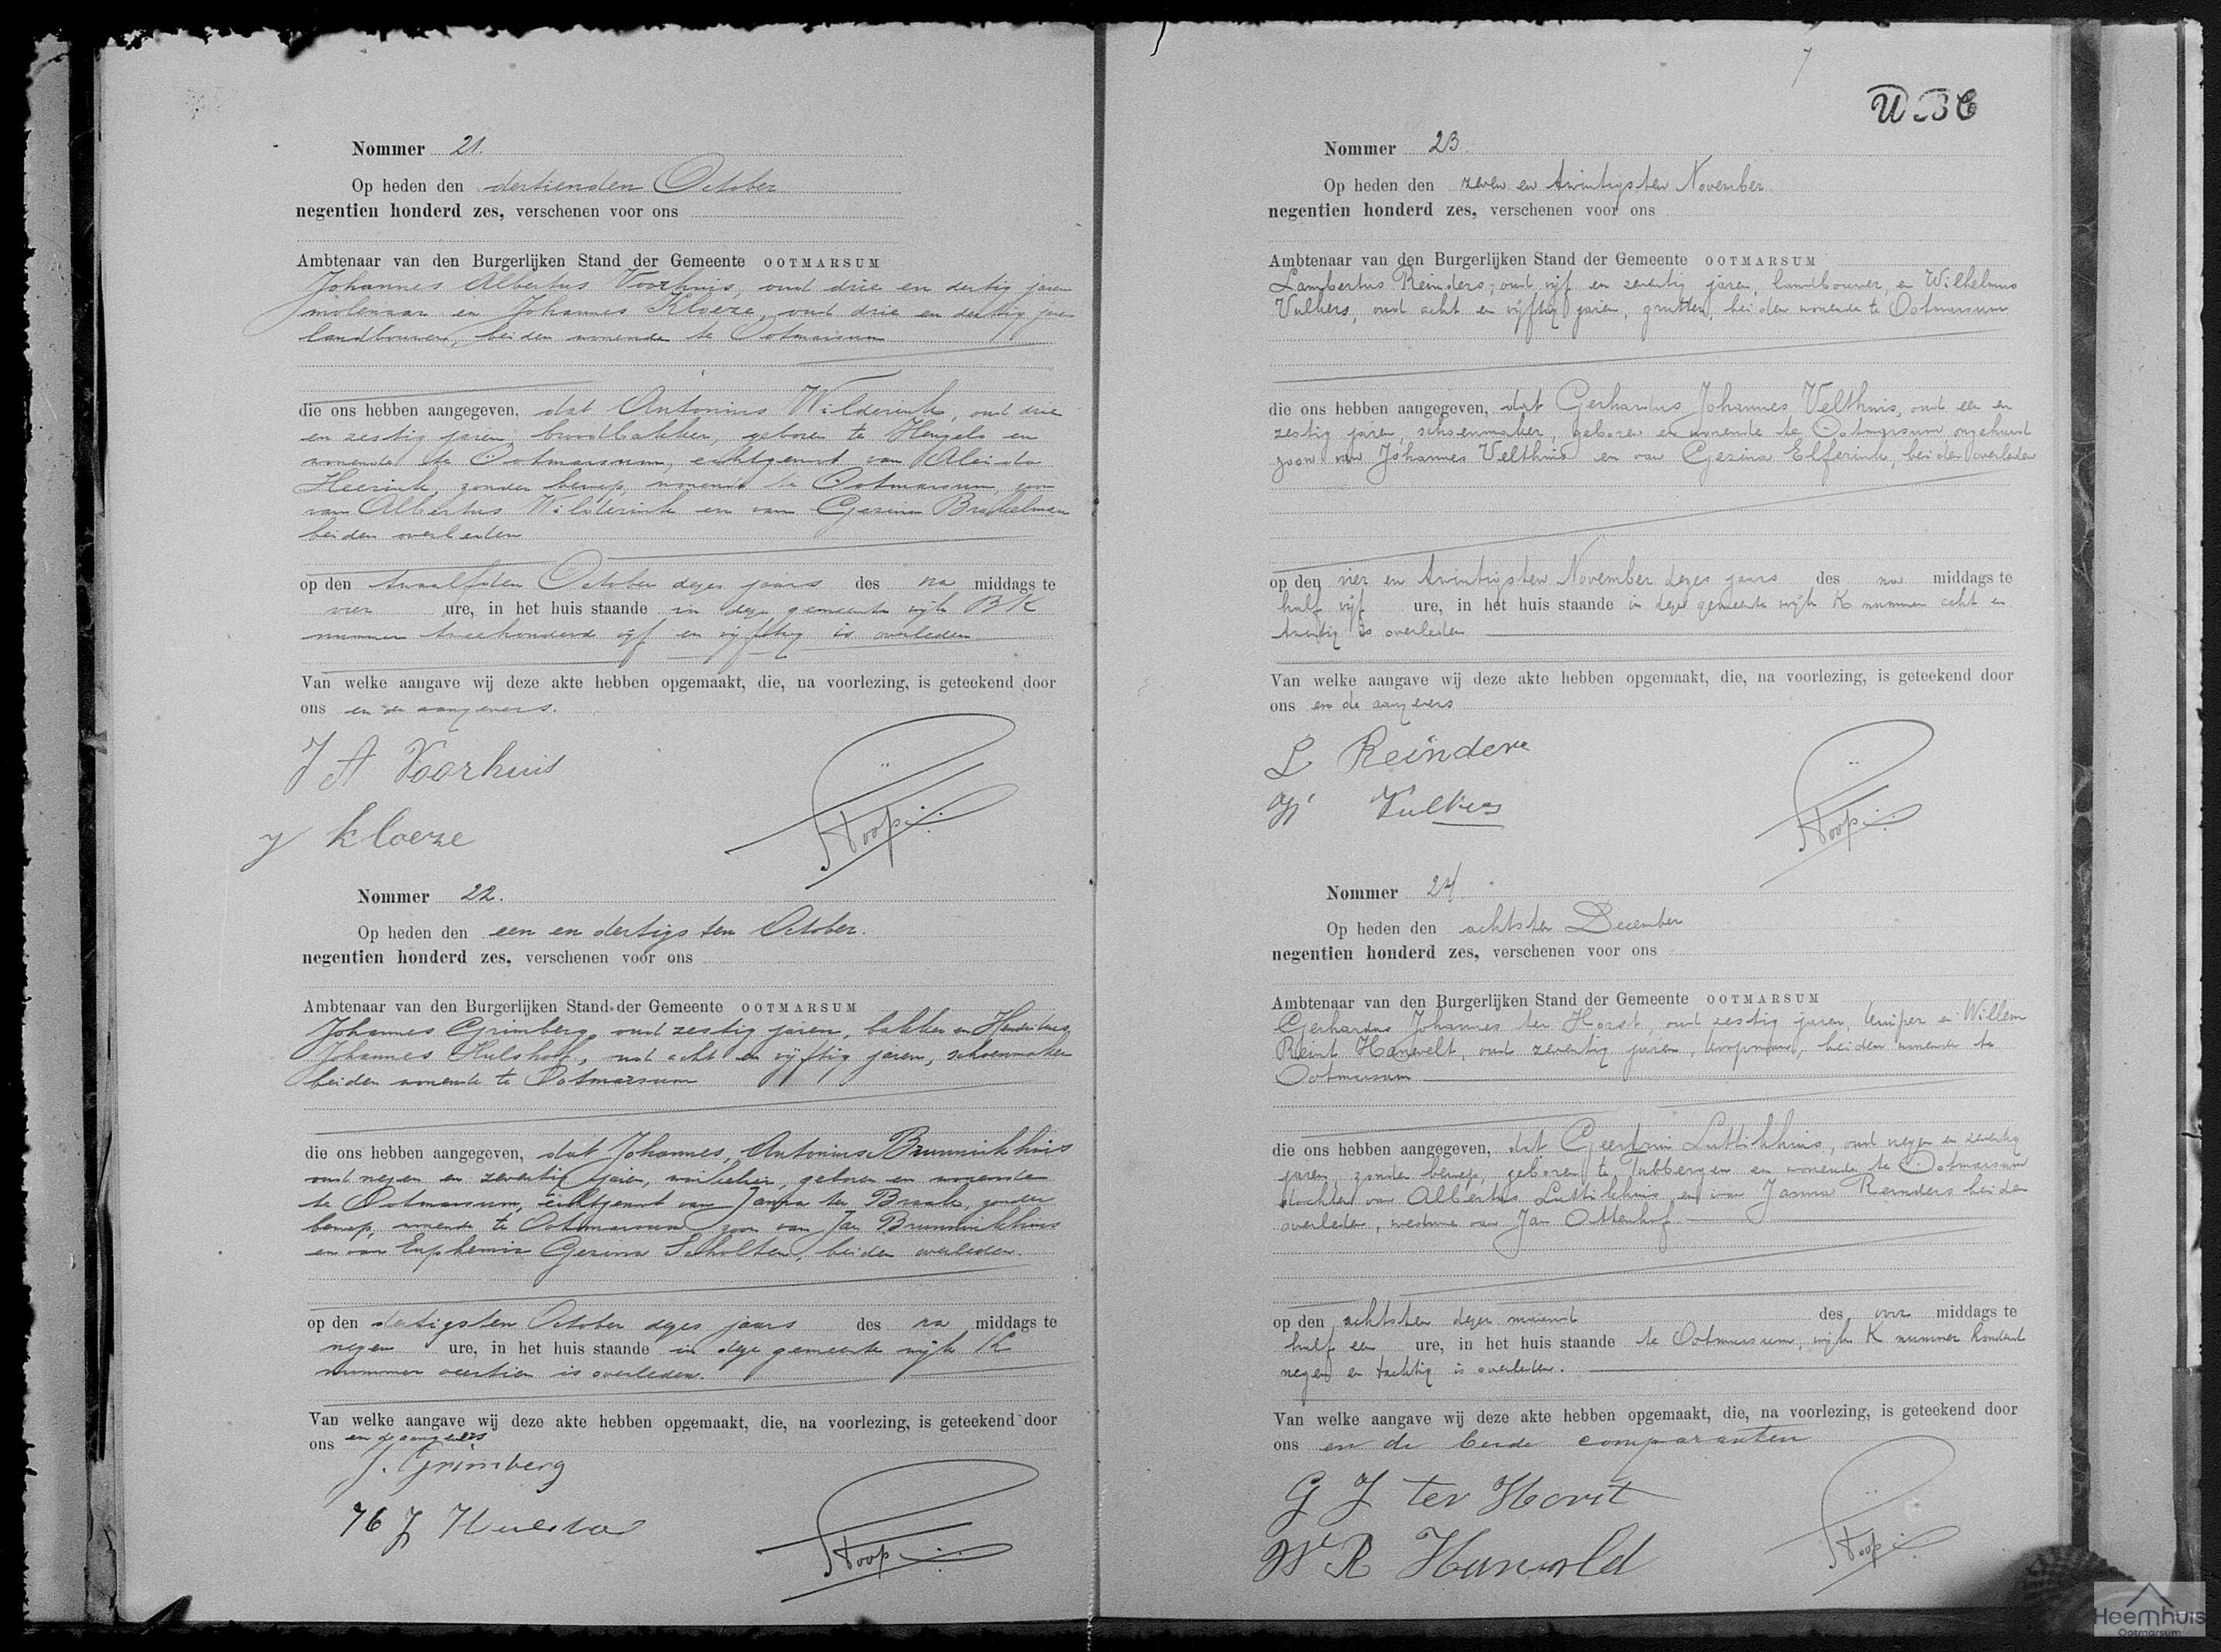 Nommer 21.
Op heden den dertienden October
negentien honderd zes, verschenen voor ons
Ambtenaar van den Burgerlijken Stand der Gemeente OOTMARSUM
Johannes Albertus Voorhuis, oud drie en dertig jaren
molenaar en Johannes Kloeze, oud drie en dertig jaren
landbouwer, beiden wonende te Ootmarsum
die ons hebben aangegeven, dat Antonius Wilderink, oud drie
en zestig jaren, broodbakker, geboren te Hengelo en
wonende te Ootmarsum, echtgenoot van Aleida
Heerink, zonder beroep, wonende te Ootmarsum, zoon
van Albertus Wilderink en van Gesina
beiden overleden
op den twaalfden October dezes jaars des na middags te
vier ure, in het huis staande in deze gemeente wijk BK
nummer tweehonderd vijf en vijftig is overleden
Van welke aangave wij deze akte hebben opgemaakt, die, na voorlezing, is geteekend door
ons en de aangevers.
J A Voorhuis
J Kloeze
Nommer 22.
Op heden den een en dertigsten October.
negentien honderd zes, verschenen voor ons
Ambtenaar van den Burgerlijken Stand der Gemeente OOTMARSUM
Johannes Grimberg, oud zestig jaren, bakker en Hendrikus
Johannes Hulshof, oud acht en vijftig jaren, schoenmaker
beiden wonende te Ootmarsum
die ons hebben aangegeven, dat Johannes, Antonius Brunninkhuis
oud negen en zeventig jaren, geboren en wonende
te Ootmarsum, echtgenoot van Janna ter Braak, zonder
beroep, wonende te Ootmarsum zoon van Jan Brunninkhuis
en van Euphemia Gesina Scholten, beiden overleden.
op den dertigsten October dezes jaars des na middags te
negen ure, in het huis staande in deze gemeente wijk K
nummer veertien is overleden.
Van welke aangave wij deze akte hebben opgemaakt, die, na voorlezing, is geteekend door
ons en de aangevers
J. Grimberg
H J Hulshof
Stoop
7
Nommer 23.
Op heden den zeven en twintigsten November
negentien honderd zes, verschenen voor ons
Ambtenaar van den Burgerlijken Stand der Gemeente OOTMARSUM
Lambertus Reinders, oud vijf en zeventig jaren, landbouwer, en Wilhelmus
Vulkers, oud acht en vijftig jaren, grutter, beiden wonende te Ootmarsum
die ons hebben aangegeven, dat Gerhardus Johannes Velthuis, oud een en
zestig jaren, schoenmaker, geboren en wonende te Ootmarsum, ongehuwd
zoon van Johannes Velthuis en van Gezina Elferink, beiden overleden
op den vier en twintigsten November dezes jaars des na middags te
half vijf ure, in het huis staande in deze gemeente wijk K nummer acht en
is overleden
Van welke aangave wij deze akte hebben opgemaakt, die, na voorlezing, is geteekend door
ons en de aangevers
L Reinders
W Vulkers
Stoop
Nommer 24.
Op heden den achtsten December
negentien honderd zes, verschenen voor ons
Ambtenaar van den Burgerlijken Stand der Gemeente OOTMARSUM
Gerhardus Johannes ter Horst, oud zestig jaren, kuiper en Willem
Reint Hanwelt, oud zeventig jaren, koopman, beiden wonende te
Ootmarsum
die ons hebben aangegeven, dat Geertrui Luttikhuis, oud negen en zeventig
jaren, zonder beroep, geboren te Tubbergen en wonende te Ootmarsum
dochter van Albertus Luttikhuis en van Janna Reinders beiden
overleden, weduwe van Jan Ottenhof
op den achtsten dezer maand des voor middags te
half een ure, in het huis staande te Ootmarsum, wijk K nummer honderd
negen en tachtig is overleden.
Van welke aangave wij deze akte hebben opgemaakt, die, na voorlezing, is geteekend door
ons en de beide comparanten
G J ter Horst
W R Hanwold
Stoop
Heemhuis
Ootmarsum